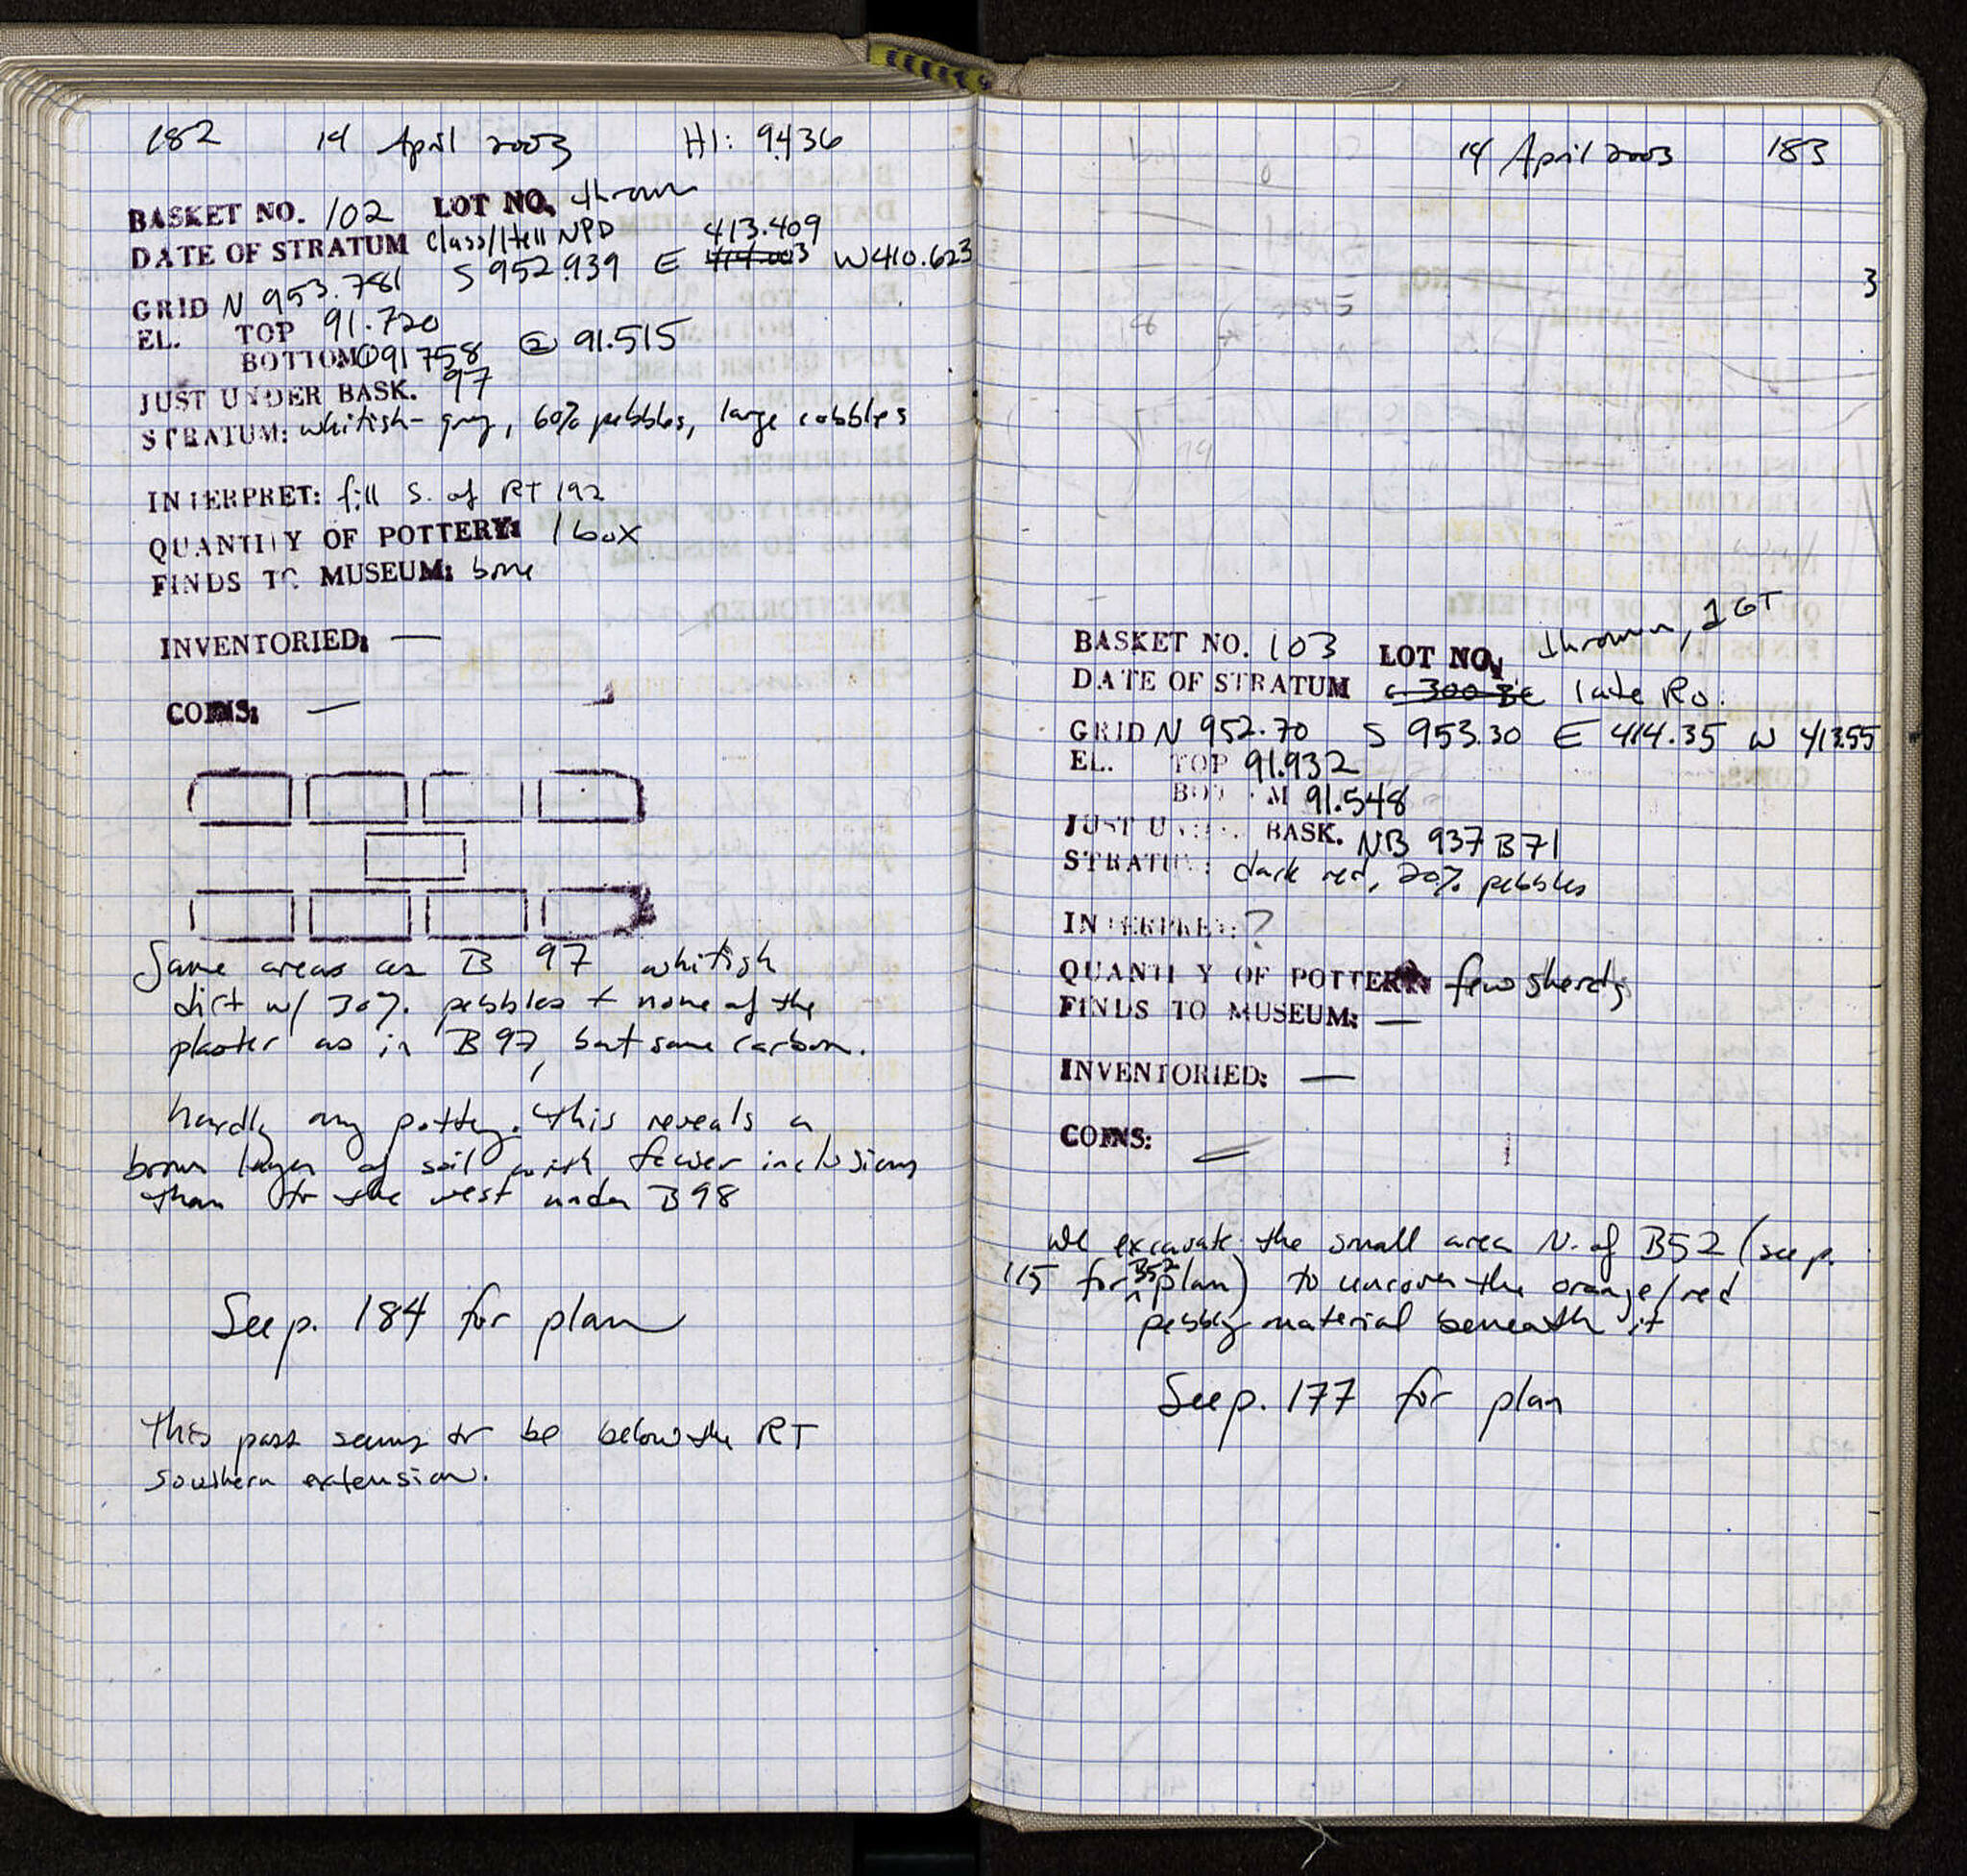 182 14 April 2003 HI: 94.36
BASKET NO. 102 LOT NO. thrown
DATE OF STRATUM Class/Hell NPD 413.409
GRID N 953.781 S 952.939 E W 410.623
EL. TOP 91.720
BOTTOM ① 91.758 @ 91.515
JUST UNDER BASK. 97
STRATUM: whitish-gray, 60% pebbles, large cobbles
INTERPRET: fill S. of RT 192
QUANTITY OF POTTERY: 1 box
FINDS TO MUSEUM: bone
INVENTORIED: —
COINS: —
Same areas as B 97 whitish
dirt w/ 30% pebbles + none of the
plaster as in B97, but some carbon.
hardly any pottery. This reveals a
brown layer of soil with fewer inclusions
than to the west under B98
See p. 184 for plan
This pass seems to be below the RT
southern extension.
14 April 2003 183
3
BASKET NO. 103 LOT NO. thrown, 1 GT
DATE OF STRATUM c 300 BC late Ro.
GRID N 952.70 S 953.30 E 414.35 W 413.55
EL. TOP 91.932
BOTTOM 91.548
JUST UNDER BASK. NB 937 B71
STRATUM: dark red, 20% pebbles
INTERPRET: ?
QUANTITY OF POTTERY: few sherds
FINDS TO MUSEUM: —
INVENTORIED: —
COINS: —
We excavate the small area N. of B52 (see p.
115 for B52 plan) to uncover the orange/red
pebbly material beneath it
See p. 177 for plan